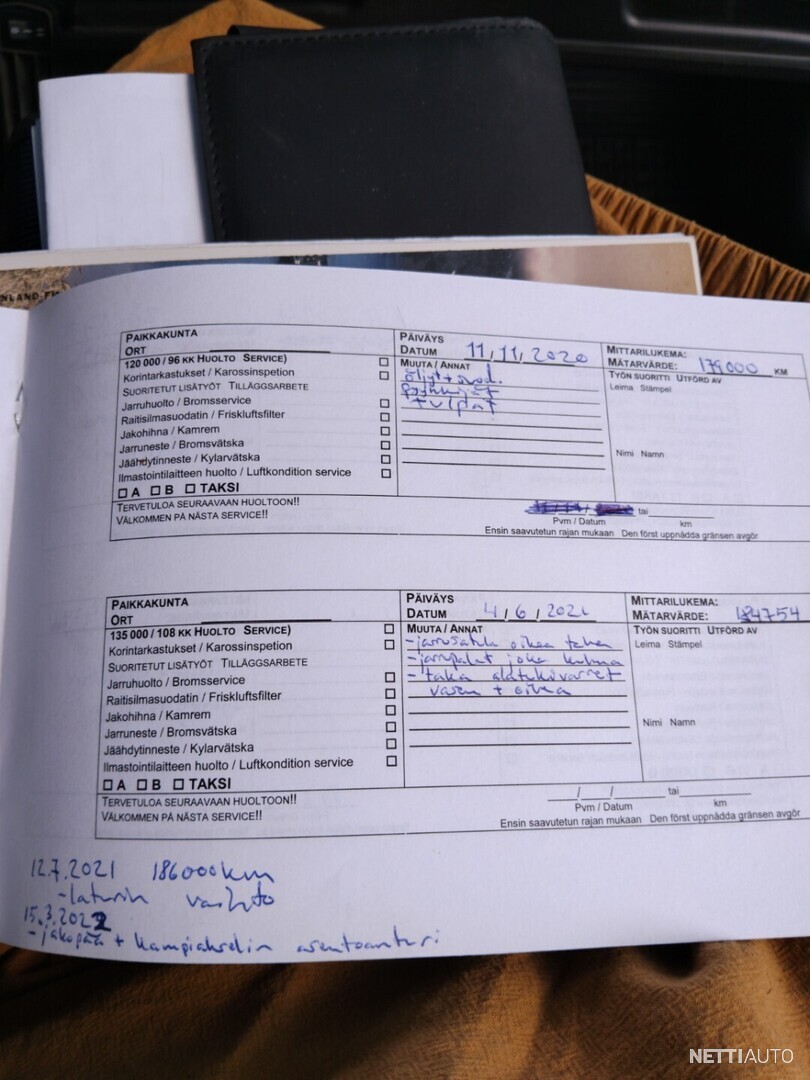 NLAND-FI
PAIKKAKUNTA
ORT
PÄIVÄYS
DATUM 11, 11, 2020
MITTARILUKEMA:
MÄTARVÄRDE: 179000 KM
120 000 / 96 KK HUOLTO SERVICE)
Korintarkastukset / Karossinspetion
SUORITETUT LISÄTYÖT TILLÄGGSARBETE
Jarruhuolto / Bromsservice
Raitisilmasuodatin / Friskluftsfilter
Jakohihna / Kamrem
Jarruneste / Bromsvätska
Jäähdytinneste / Kylarvätska
Ilmastointilaitteen huolto / Luftkondition service
A B TAKSI
MUUTA / ANNAT
öljyt + suod.
pyyhkijät
tulpat
TYÖN SUORITTI UTFÖRD AV
Leima Stämpel
Nimi Namn
TERVETULOA SEURAAVAAN HUOLTOON!!
VÄLKOMMEN PÅ NÄSTA SERVICE!!
tai
Pvm / Datum km
Ensin saavutetun rajan mukaan Den först uppnådda gränsen avgör
PAIKKAKUNTA
ORT
PÄIVÄYS
DATUM 4 / 6 / 2021
MITTARILUKEMA:
MÄTARVÄRDE: 184754
135 000 / 108 KK HUOLTO SERVICE)
Korintarkastukset / Karossinspetion
SUORITETUT LISÄTYÖT TILLÄGGSARBETE
Jarruhuolto / Bromsservice
Raitisilmasuodatin / Friskluftsfilter
Jakohihna / Kamrem
Jarruneste / Bromsvätska
Jäähdytinneste / Kylarvätska
Ilmastointilaitteen huolto / Luftkondition service
A B TAKSI
MUUTA / ANNAT
- jarrusatula oikea taka
- jarrupalat joka kulma
- taka alatukivarret
vasen + oikea
TYÖN SUORITTI UTFÖRD AV
Leima Stämpel
Nimi Namn
TERVETULOA SEURAAVAAN HUOLTOON!!
VÄLKOMMEN PÅ NÄSTA SERVICE!!
/ / tai
Pvm / Datum km
Ensin saavutetun rajan mukaan Den först uppnådda gränsen avgör
12.7.2021 186000km
- laturin vaihto
15.3.2022
- jakopää + kampiakselin asentoanturi
NETTIAUTO